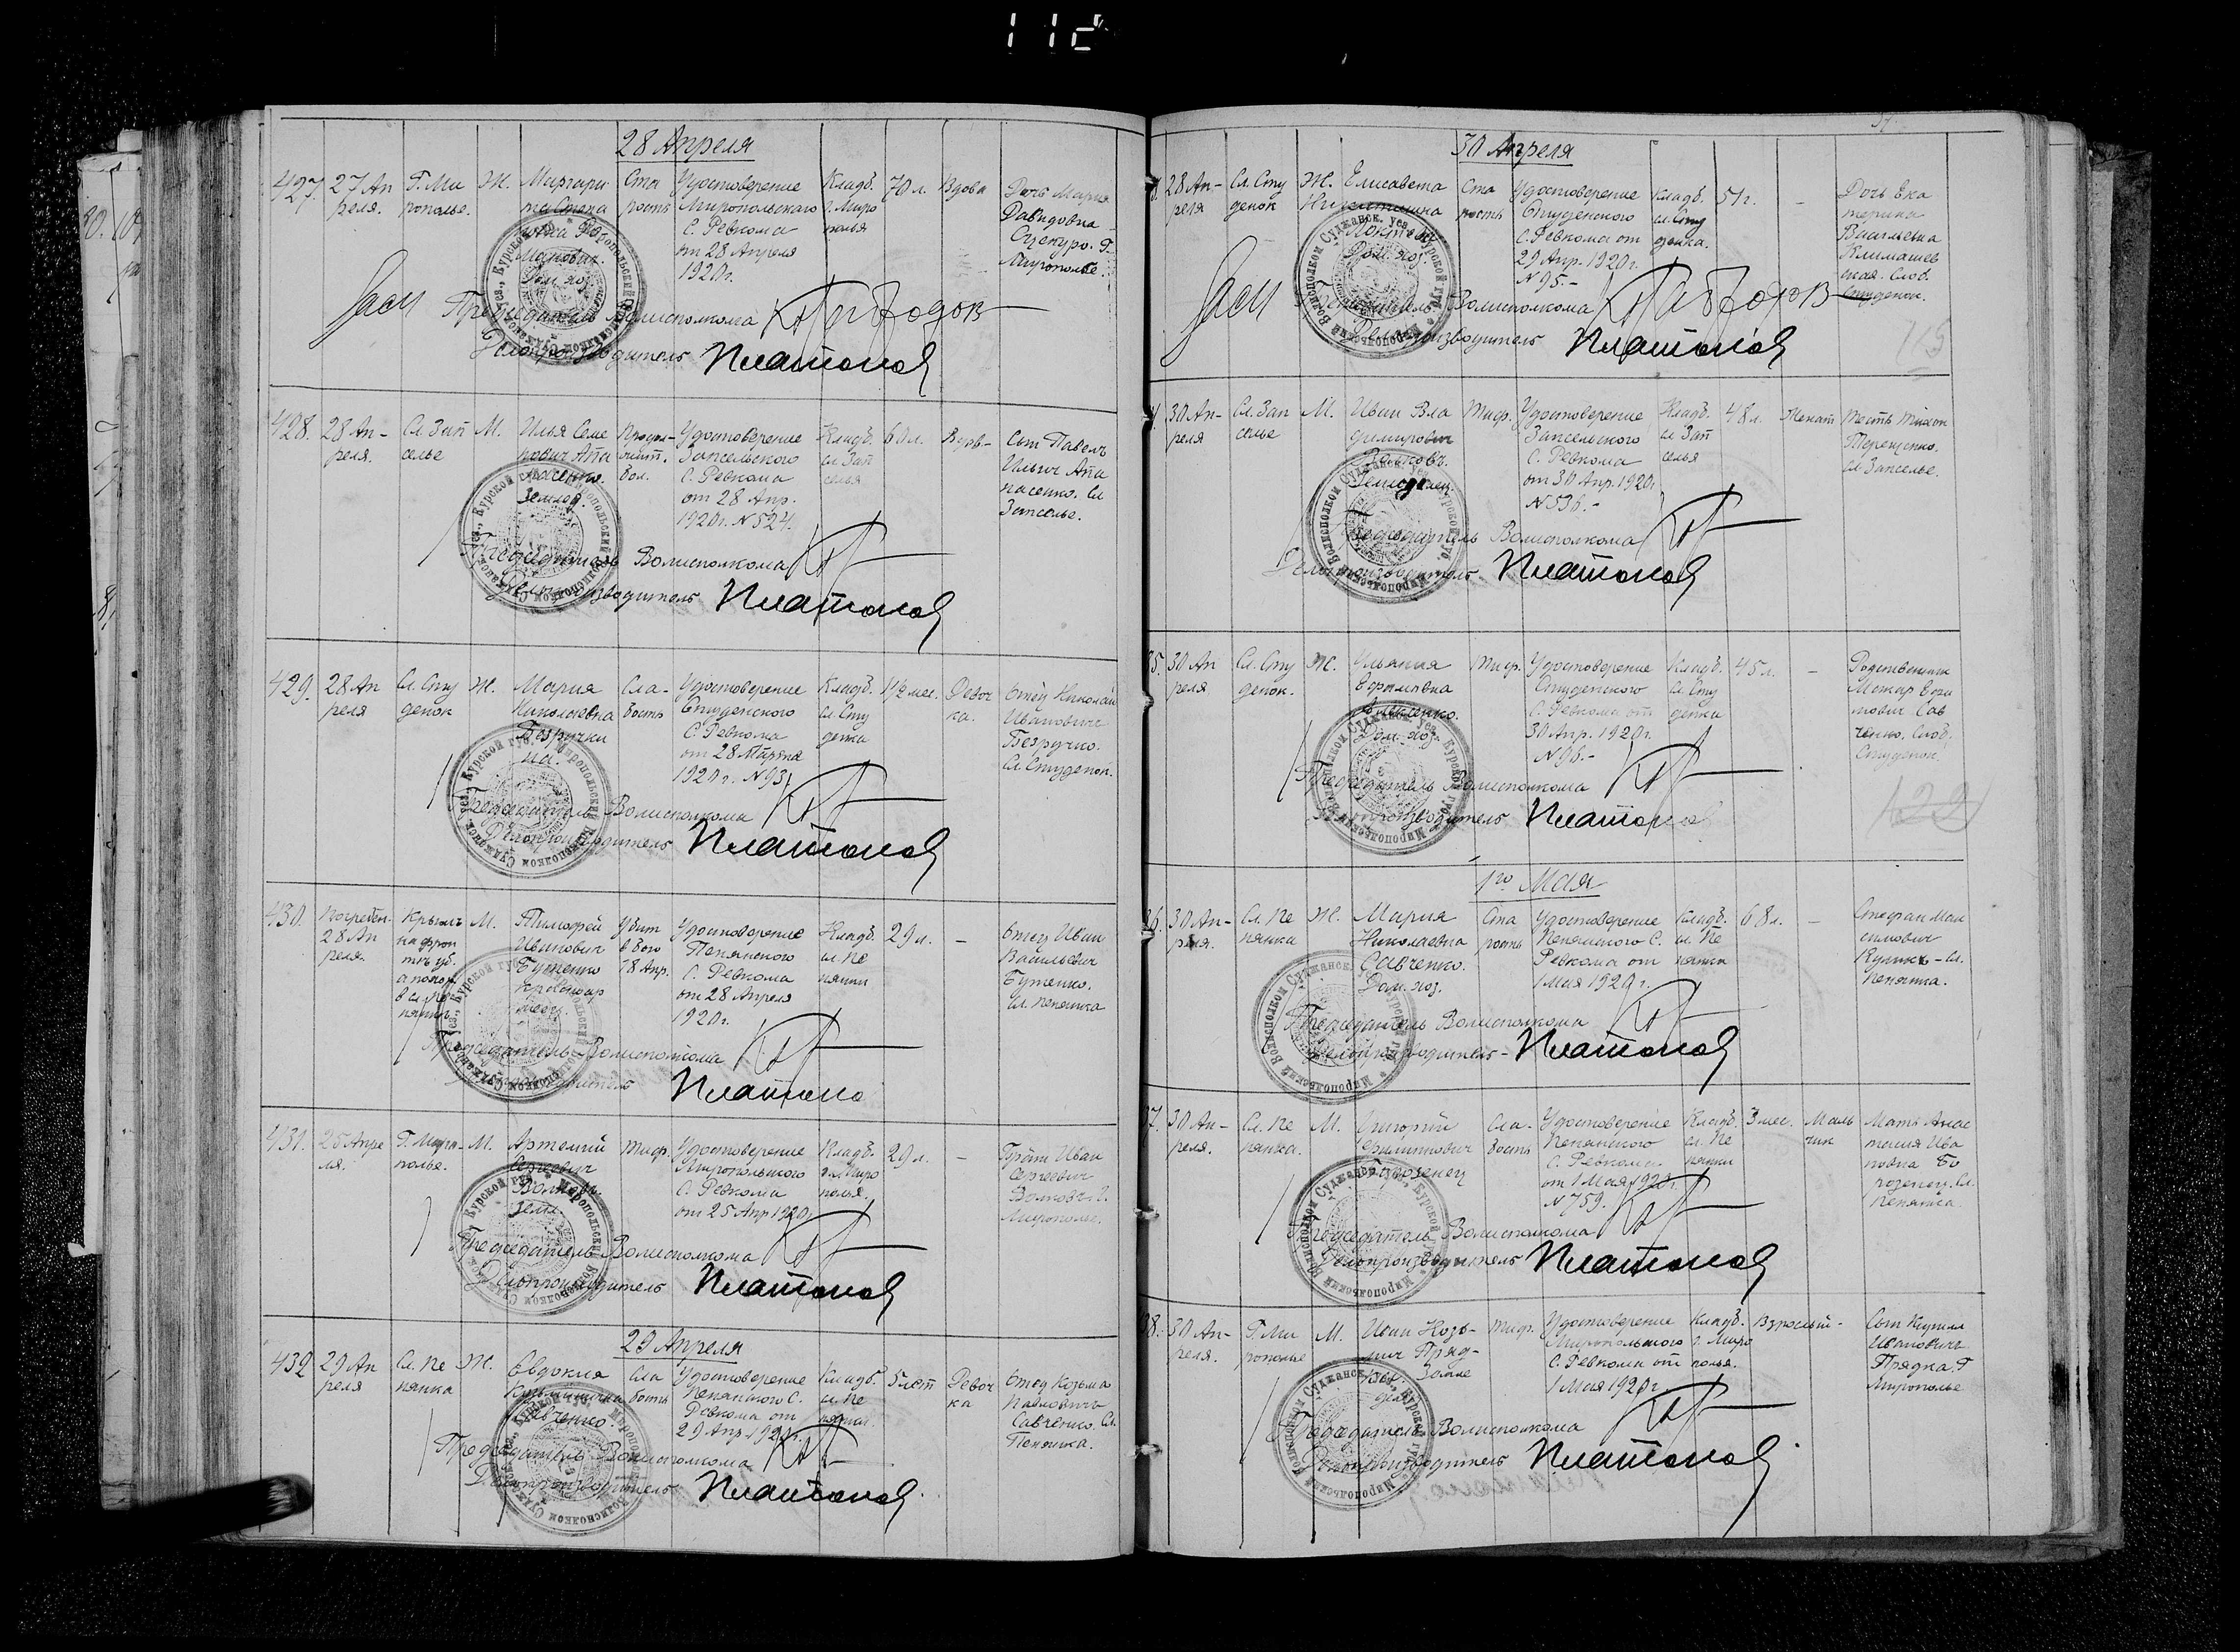 28 Апреля
427. 27 Ап
реля.
Г. Ми
рополье.
Ж.
Маргари
та
Ста
рость
Удостоверение
Миропольскаго
С. Ревкома
от 28 Апреля
1920 г.
Кладб.
г. Миро
полья
70 л.
Вдова
Дочь Мария
Давидовна
Г.
Мирополье.
Председатель Волисполкома
Делопроизводитель Платонов
428. 28 Ап-
реля.
Сл. Зап
селье
М.
Илья Семе
нович Апа
насенко.
Землед.
Удостоверение
Запсельского
С. Ревкома
от 28 Апр.
1920 г. № 524.
Кладб.
сл Зап
селья
60 л.
Вдов-
Сын Павелъ
Ильич Апа
насенко. Сл
Запселье.
Председатель Волисполкома
Делопроизводитель Платонов
429. 28 Ап
реля
Сл. Сту
денок
Ж.
Мария
Николаевна
Безручки
на.
Сла-
бость
Удостоверение
Студенского
С. Ревкома
от 28
1920 г. № 93
Кладб.
сл. Сту
денка
1 1/2 мес.
Девоч
ка.
Отец Николай
Ивановичъ
Безручко.
Сл. Студенок.
Председатель Волисполкома
Делопроизводитель Платонов
430. Погребен.
28 Ап
реля.
Крымъ
на фрон
тъ уб.
а похор.
в сл. Пе
нянки.
М.
Тимофей
Иванович
Бутенко
Красноар
меец.
Убит
в бою
Апр.
Удостоверение
Пенянского
С. Ревкома
от 28 Апреля
1920 г.
Кладб.
сл. Пе
нянки
29 л.
-
Отец Иван
Васильевич
Бутенко.
Сл. Пенянка
Председатель Волисполкома
Делопроизводитель Платонов
431. 25 Апре
ля.
Г. Миро-
полье.
М.
Артемий
Сергеевич
Волковъ.
земл.
Тиф.
Удостоверение
Миропольского
С. Ревкома
от 25 Апр 1920 г
Кладб.
Миро
полья.
29 л.
-
Брат Иван
Сергеевич
Волковъ. Г.
Мирополье.
Председатель Волисполкома
Делопроизводитель Платонов
29 Апреля
432 29 Ап
реля
Сл. Пе
нянка
Ж.
Евдокия
Кузьминична
Савченко.
Сла
бость
Удостоверение
Пенянского С.
Ревкома от
29 Апр. 1920 г.
Кладб.
сл. Пе
нянки.
5 лет
Девоч
ка
Отец Козьма
Павловичъ
Савченко. Сл.
Пенянка.
Председатель Волисполкома
Делопроизводитель Платонов.
30 Апреля
28 Ап-
реля
Сл. Сту
денок
Ж.
Елисавета
Никитишна
Дом. хоз.
Ста
рость
Удостоверение
Студенского
С. Ревкома от
29 Апр. 1920 г.
№ 95.-
Кладб.
сл. Сту
денка.
51 г.
-
Дочь Ека
терина
Васильевна
Климашев
ская. Слоб.
Студенок.
Председатель Волисполкома
Делопроизводитель Платонов
30 Ап-
реля
Сл. Зап
селье
М.
Иван Вла
димирович
Тиф.
Удостоверение
Запсельского
С. Ревкома
от 30 Апр. 1920 г
№ 536.-
Кладб.
сл Зап
селья
48 л.
Женат
Тесть
Терещенко.
Сл. Запселье.
Председатель Волисполкома
Делопроизводитель Платонов
30 Ап
реля
Сл. Сту
денок.
Ж.
Ульяния
Ефимовна
Дом. хоз.
Тиф.
Удостоверение
Студенского
С. Ревкома от
30 Апр. 1920 г.
№ 96.-
Кладб.
Сл. Сту
денка
45 л.
-
Родственник
Макар Ефи
мович Сав
ченко. Слоб.
Студенок.
Председатель Волисполкома
Делопроизводитель Платонов
1го Мая
30 Ап-
реля.
Сл. Пе
нянка
Ж.
Мария
Николаевна
Савченко.
Дом. хоз.
Ста
рость
Удостоверение
Пенянского С.
Ревкома от
1 Мая 1920 г.
Кладб.
сл. Пе
нянки
68 л.
-
Стефан Мак
симович
Сл.
Пенянка.
Председатель Волисполкома
Делопроизводитель- Платонов
30 Ап-
реля.
Сл. Пе
нянка.
М.
Григорий
Филиппович
Сла-
бость
Удостоверение
Пенянского
С. Ревкома.
от 1 Мая 1920 г.
№ 759.
Кладб.
сл. Пе
нянки
3 мес.
Маль
чик
Мать Анас
тасия Ива
новна Бо
розенец. Сл.
Пенянка.
Председатель Волисполкома
Делопроизводитель Платонов
30 Ап-
реля.
Г. Ми
рополье
М.
Иван Козь-
мич Пряд-
ка. Земле
дел.
Тиф.
Удостоверение
Миропольского
С. Ревкома от
1 Мая 1920 г.
Кладб.
г. Миро
полья.
Взрослый-
Сын Кирилл
Ивановичъ
Прядка. Г
Мирополье
Председатель Волисполкома
Делопроизводитель Платонов